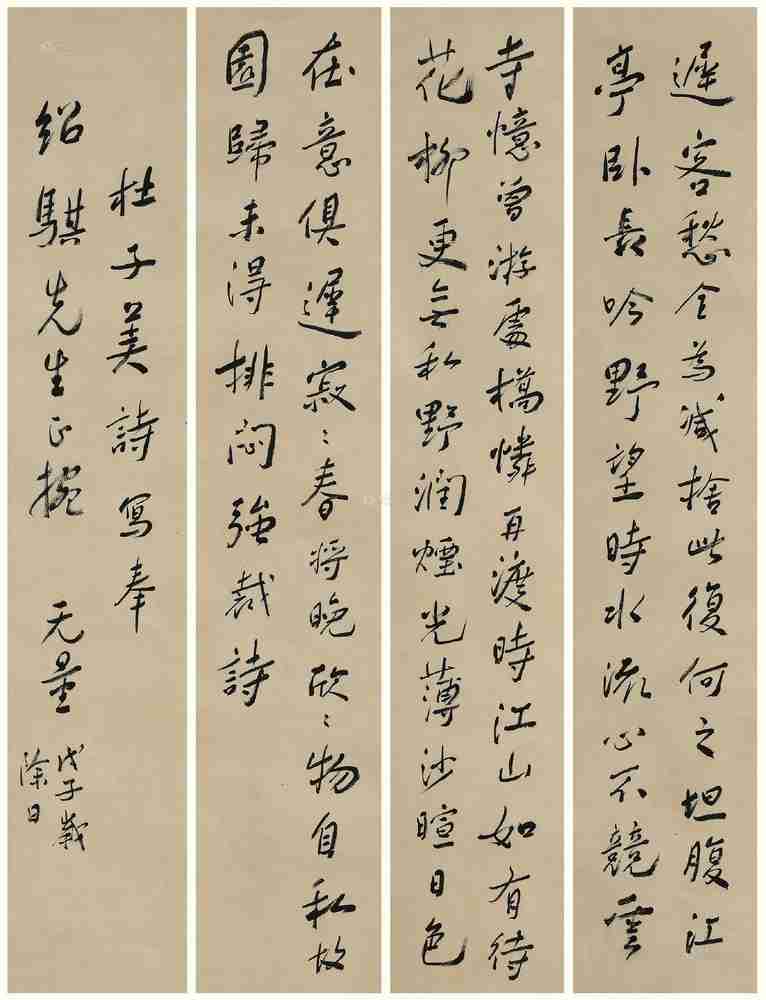 遲客愁全為減捨此復何之坦腹江
亭卧長吟野望時水流心不競雲
寺憶曾游處橋憐再渡時江山如有待
花柳更無私野潤煙光薄沙暄日色
在意俱遲寂〻春將晚欣〻物自私故
園歸未得排悶強裁詩
杜子美詩寫奉
紹騏先生正捥 无量
戊子歲
除日